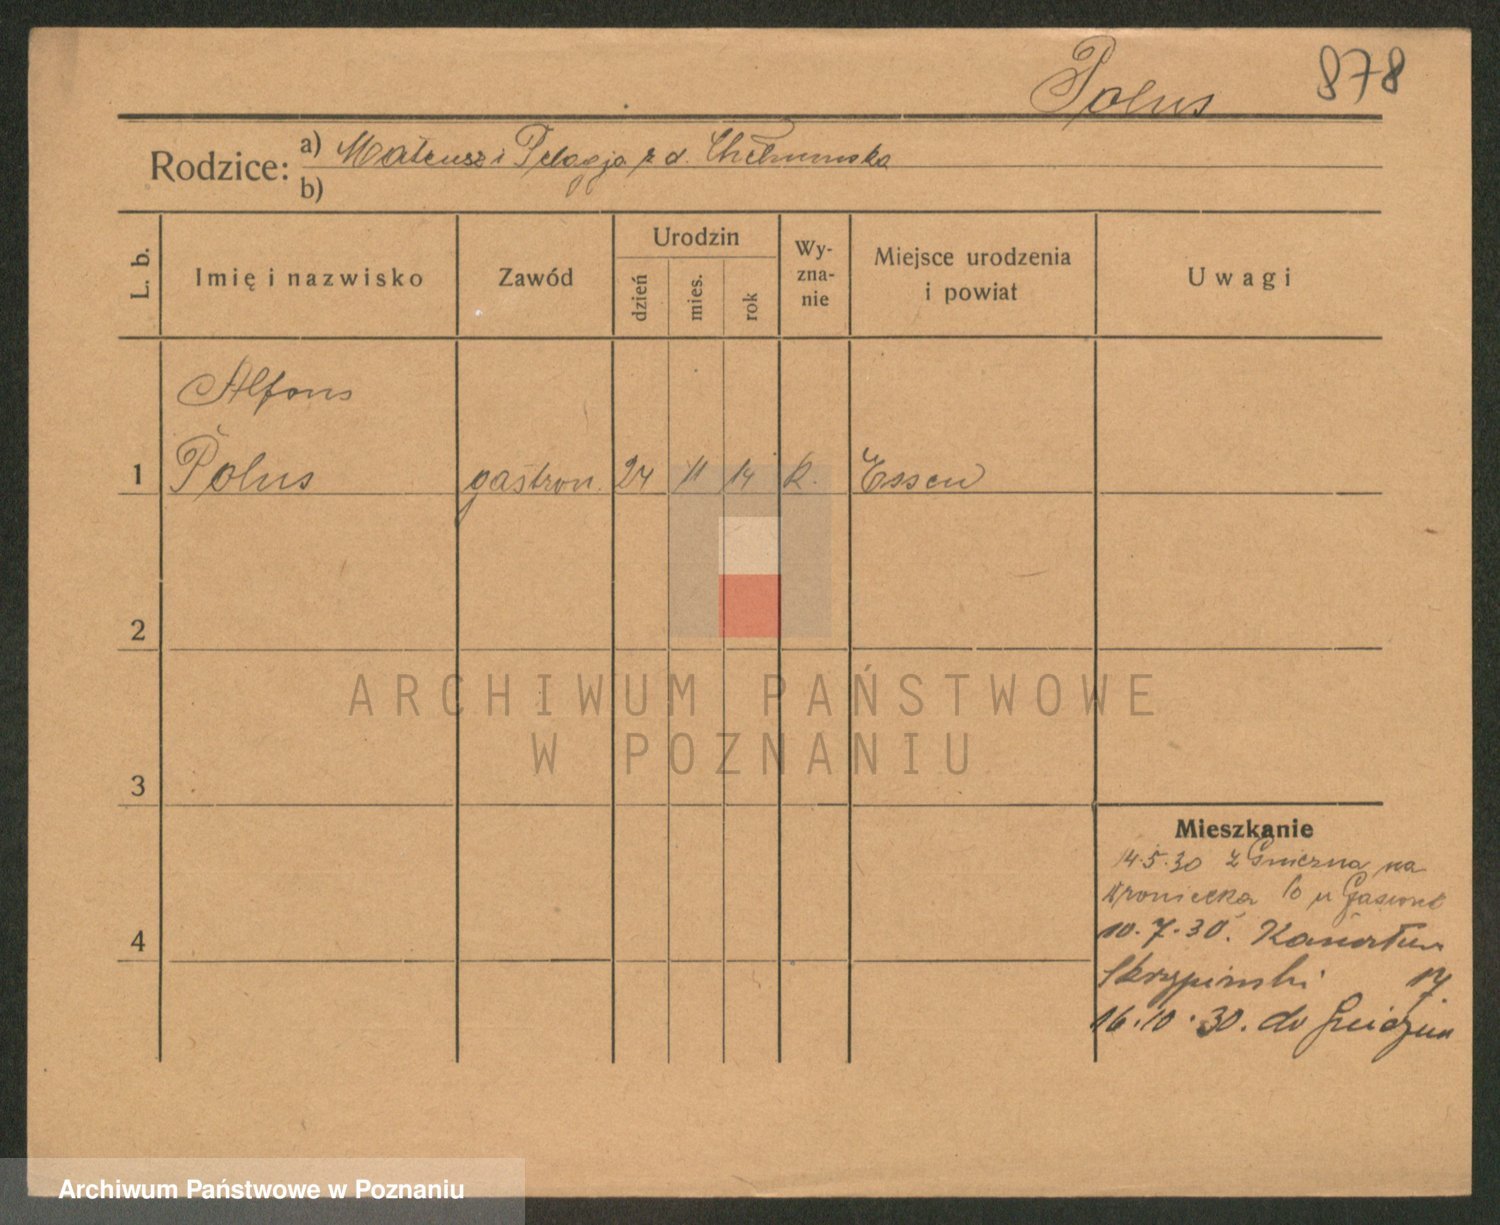 Polus 878
Rodzice: a) Mateusz i Pelagja z d. Chełmińska
b)
L. b. Imię i nazwisko Zawód Urodzin dzień mies. rok Wy-zna-nie Miejsce urodzenia i powiat Uwagi
Alfons
1 Polus gastron. 24 11 14 k. Essen
2
ARCHIWUM PAŃSTWOWE
W POZNANIU
3
Mieszkanie
14.5.30 z Gniezna na
10 u
4 10.7.30.
Skrzypiński 17.
16.10.30. do Gniezna
Archiwum Państwowe w Poznaniu